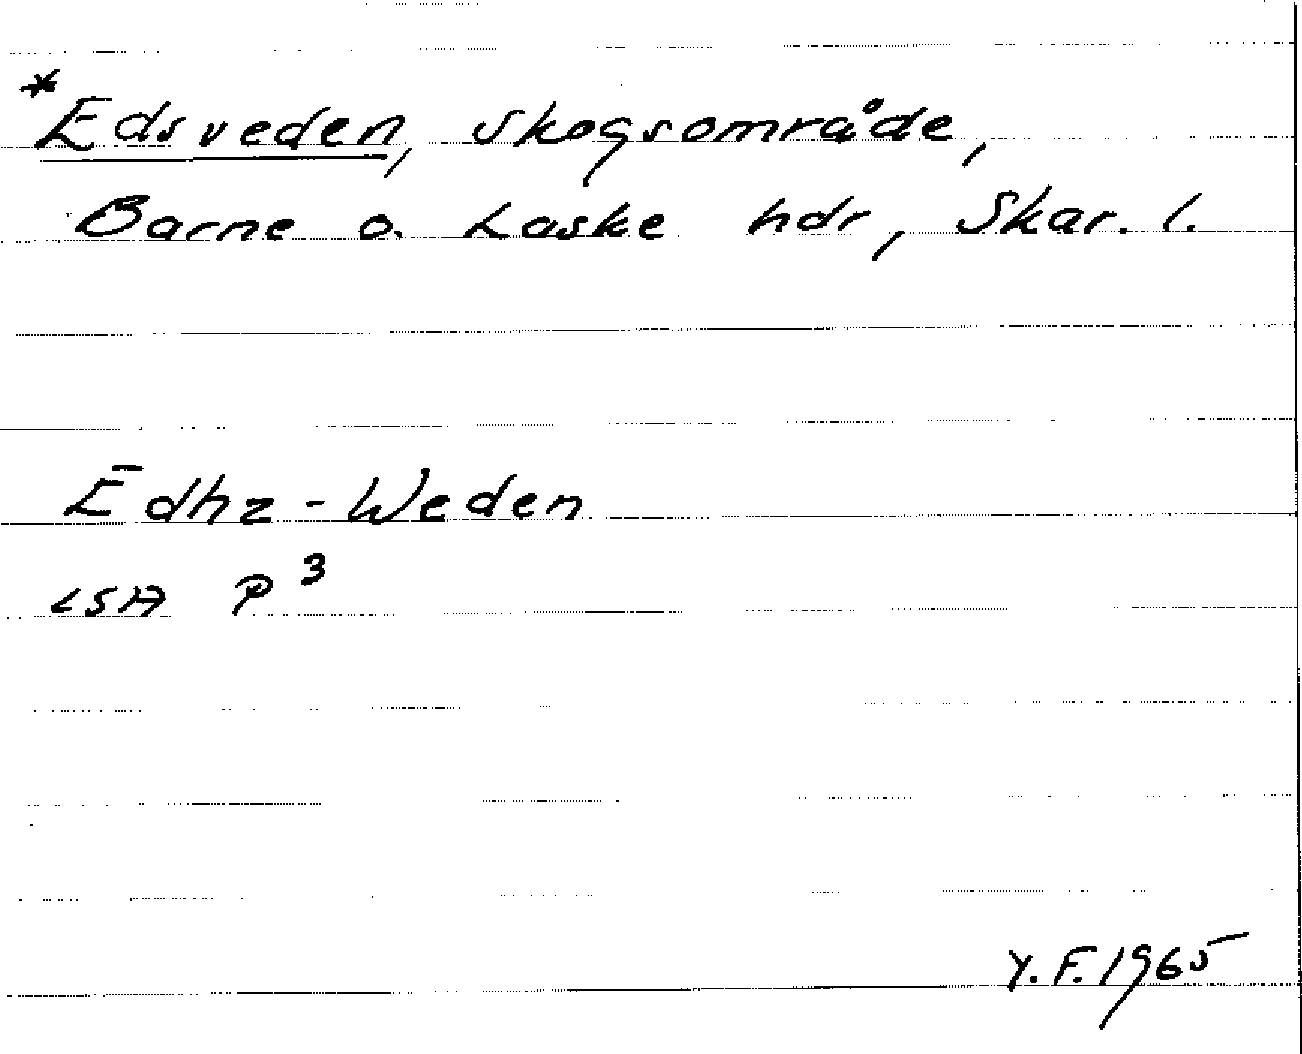 *Edsveden, skogsområde,
Barne o. Laske hdr, Skar. l.
Edhz-Weden
LSA P³
Y.F. 1965